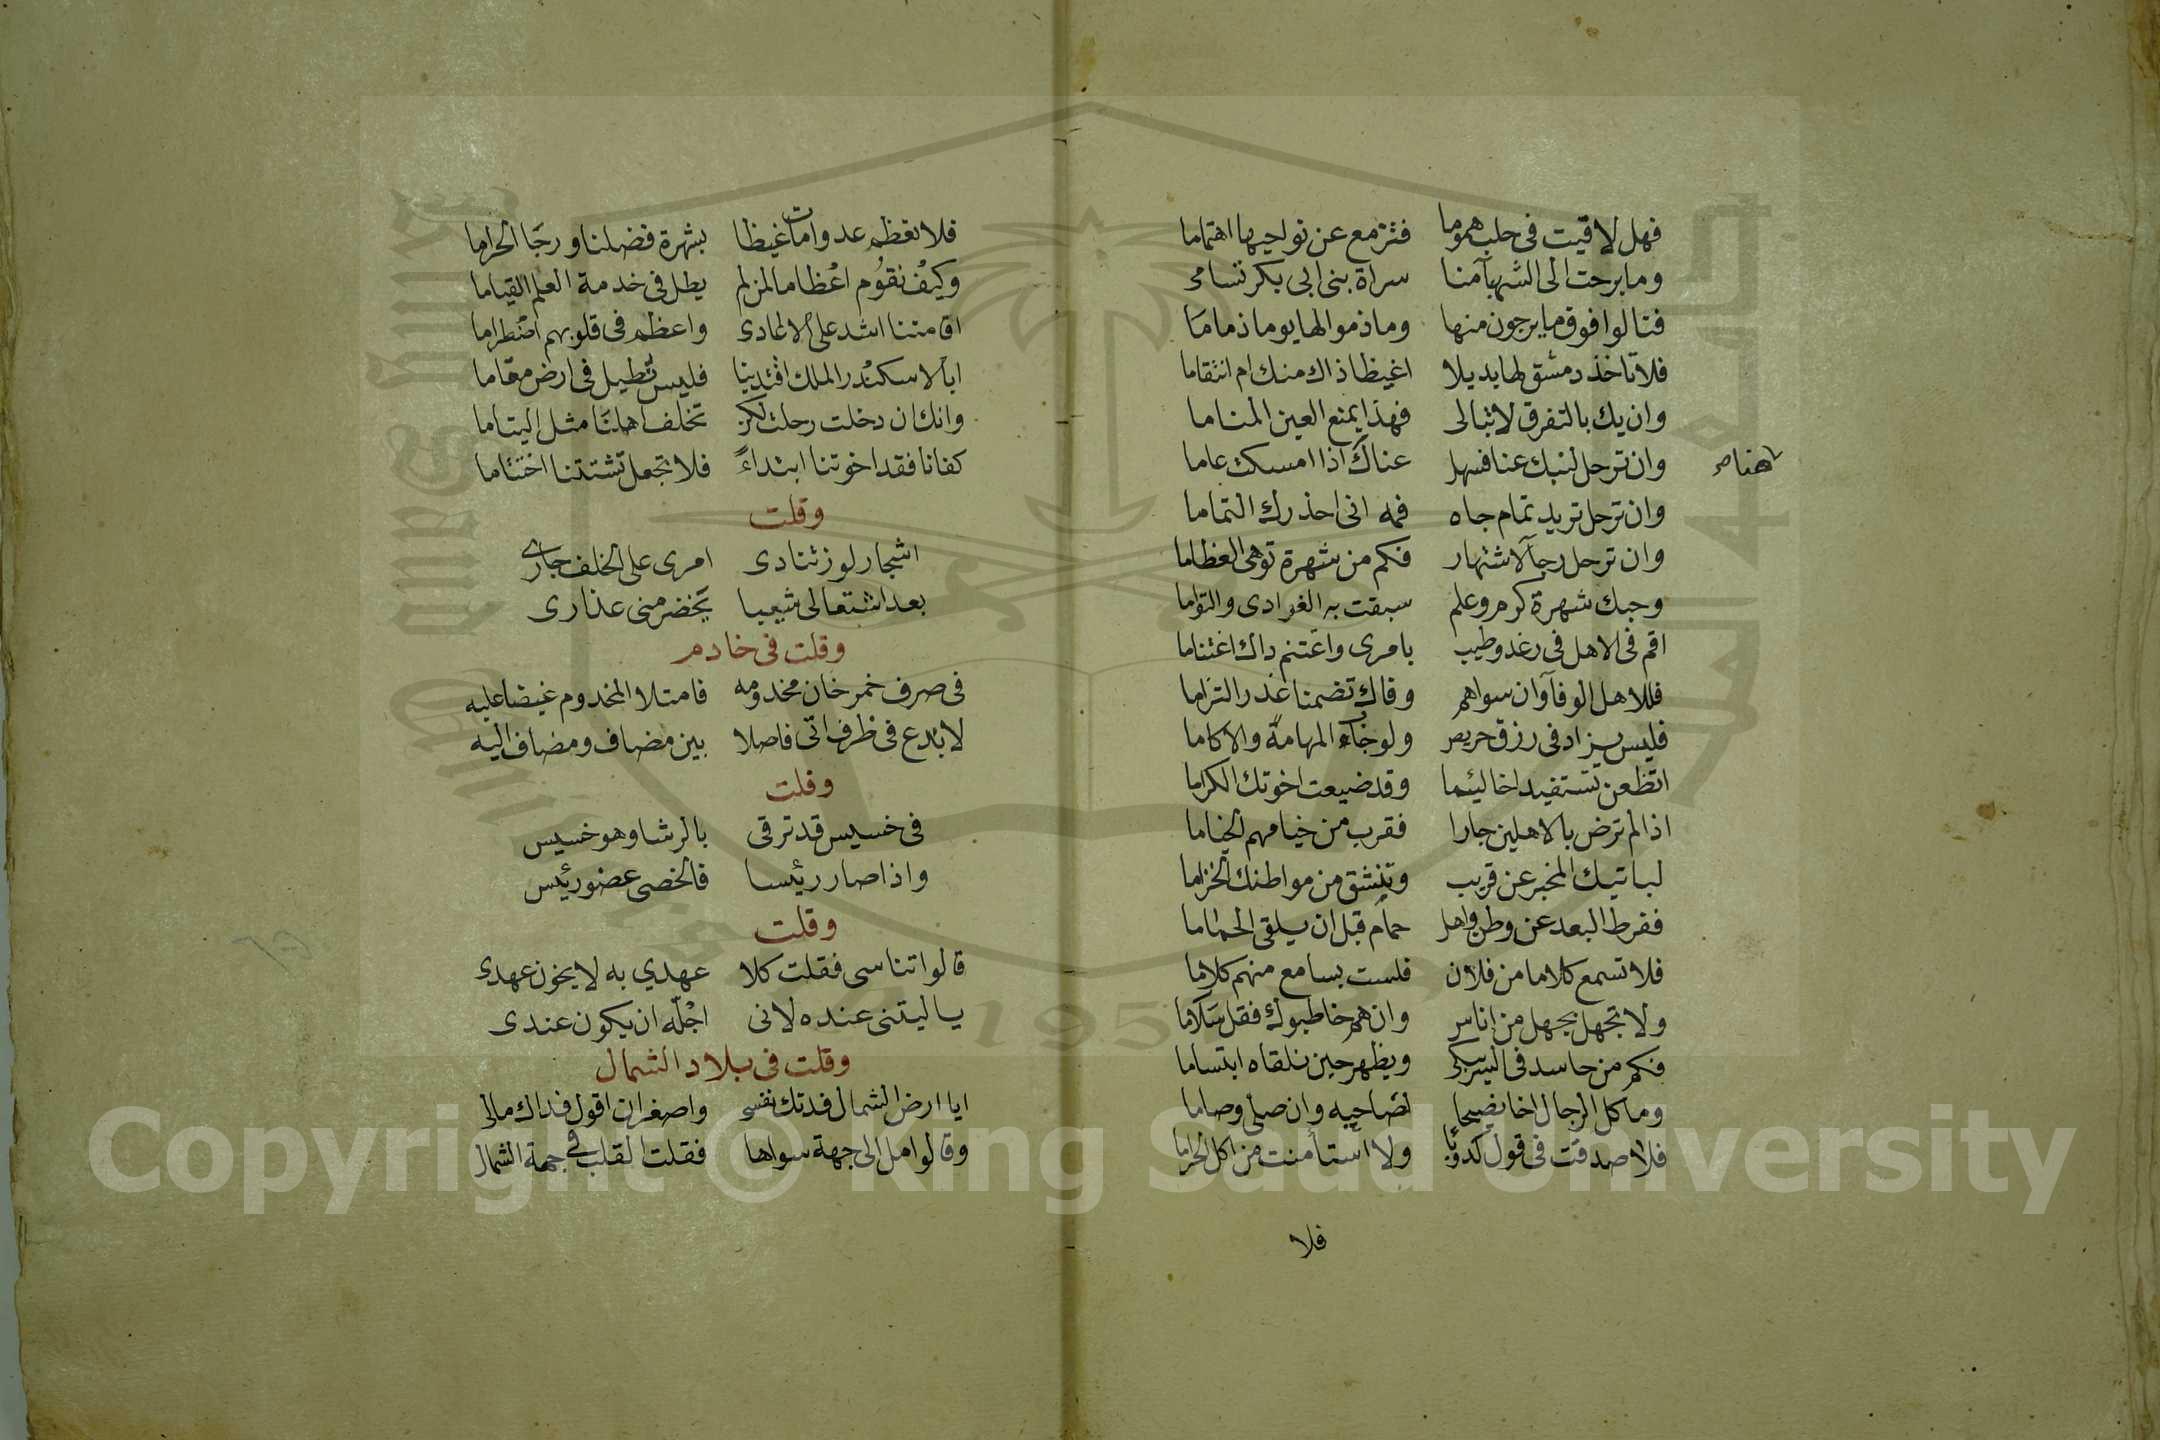 فهل لاقيت فى حلب هموما فتزمع عن نواحيها اهتماما
وما برحت الى الشهبآ منا سراة بنى ابى بكر تسامى
فنالوا فوق ما يرجون منها وما ذموا لها يوما ذماما
فلا تاخذ دمشق لها بديلا اغيظا ذاك منك ام انتقاما
وان يك بالتفرق لا تبالى فهذا يمنع العين المناما
وان ترحل لنبك عنا فسهل عناك اذا امسكت عاما
هنا
وان ترحل تريد تمام جاه فمه انى احذرك التماما
وان ترحل رجآ لاشتهار فكم من شهرة توهى العظاما
وحبك شهرة كرم وعلم سبقت به الغوادى والتواما
اقم فى الاهل فى رغد وطيب بامرى واغتنم ذاك اغتناما
فللاهل الوفآ وان سواهم وفاك تضمنا غدر التزاما
فليس يزاد فى رزق حريص ولو جاب المهامة والاكاما
اتظعن تستفيد اخا لئيما وقد ضيعت اخوتك الكراما
اذا لم ترض بالاهلين جارا فقرب من خيامهم الخياما
لياتيك المخبر عن قريب وتنشق من مواطنك الخزاما
ففرط البعد عن وطن واهل حمام قبل ان يلقى الحماما
فلا تسمع كلاما من فلان فلست بسامع منهم كلاما
ولا تجهل بجهل من اناس وان هم خاطبوك فقل سلاما
فكم من حاسد فى السر يبكى ويظهر حين نلقاه ابتساما
وما كل الرجال اخا نصيحا لصاحبه وان صلى وصاما
فلا صدقت فى قول كذوبا ولا استأمنت من اكل الحراما
فلا
فلا تعظم عدوا مات غيظا بشهرة فضلنا ورجا الحراما
وكيف نقوم اعظاما لمن لم يطل فى خدمة العلم القياما
اقامتنا اشد على الاعادى واعظم فى قلوبهم اضطراما
ابا لاسكندر الملك اقتدينا فليس نطيل فى ارض مقاما
وانك ان دخلت رحلت لكن تخلف اهلنا مثل اليتاما
كفانا فقد اخوتنا ابتداءً فلا تجعل تشتتنا اختتاما
وقلت
اشجار لوز تنادى امرى على الخلف جارى
بعد اشتعالى شيبا يخضر منى عذارى
وقلت فى خادم
فى صرف خمر خان مخدومه فامتلا المخدوم غيضا عليه
لا بدع فى ظرف اتى فاصلا بين مضاف ومضاف اليه
وقلت
فى خسيس قد ترقى بالرشا وهو خسيس
واذا صار رئيسا فالخصى عضو رئيس
وقلت
قالوا تناسى فقلت كلا عهدي به لا يخون عهدى
يا ليتنى عنده لانى اجلّه ان يكون عندى
وقلت فى بلاد الشمال
ايا ارض الشمال فدتك نفسى واصغر ان اقول فداك مالى
وقالوا مل الى جهة سواها فقلت القلب فى جهة الشمال